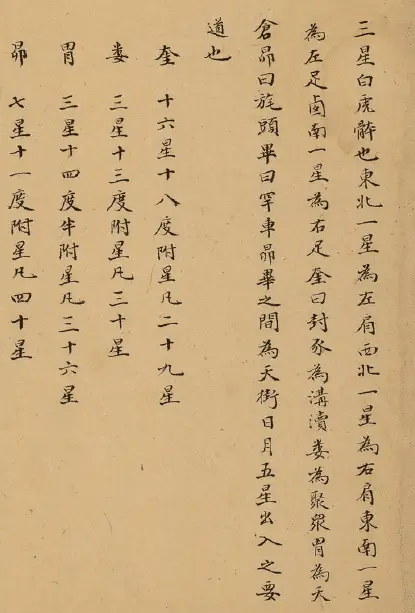 三星白虎軆也東北一星為左肩西北一星為右肩東南一星
為左足西南一星為右足奎曰封豕為溝瀆婁為聚衆胃為天
倉昴曰旄頭畢曰罕車昴畢之間為天街日月五星出入之要
道也
奎 十六星十八度附星凡二十九星
婁 三星十三度附星凡三十星
胃 三星十四度半附星凡三十六星
昴 七星十一度附星凡四十星